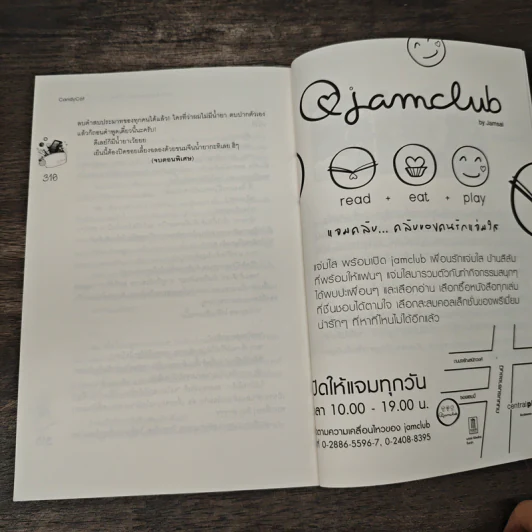 CandyCat
ตบคำสบประมาทของทุกคนได้แล้ว! ใครที่ว่าผมไม่มีน้ำยา ตบปากตัวเอง
แล้วกินคำพูดเดี๋ยวนี้นะครับ!
ดีเลย์ก็มีน้ำยาเว้ยยย
เย็นนี้ต้องปิดซอยเลี้ยงฉลองด้วยขนมจีนน้ำยากะทิเลย ฮิๆ
(จบตอนพิเศษ)
310
@jamclub
by Jamsai
read + eat + play
แจมคลับ... คลับของคนรักแจ่มใส
แจ่มใส พร้อมเปิด jamclub เพื่อนรักแจ่มใส บ้านสีส้ม
ที่พร้อมให้แฟนๆ แจ่มใสมารวมตัวกันทำกิจกรรมสนุกๆ
ได้พบปะเพื่อนๆ และเลือกอ่าน เลือกซื้อหนังสือทุกเล่ม
ที่ชื่นชอบได้ตามใจ เลือกสะสมคอลเล็กชั่นของพรีเมี่ยม
น่ารักๆ ที่หาที่ไหนไม่ได้อีกแล้ว
ปิดให้แจมทุกวัน
ลา 10.00 - 19.00 น.
ตามความเคลื่อนไหวของ jamclub
ที่ 0-2886-5596-7, 0-2408-8395
central